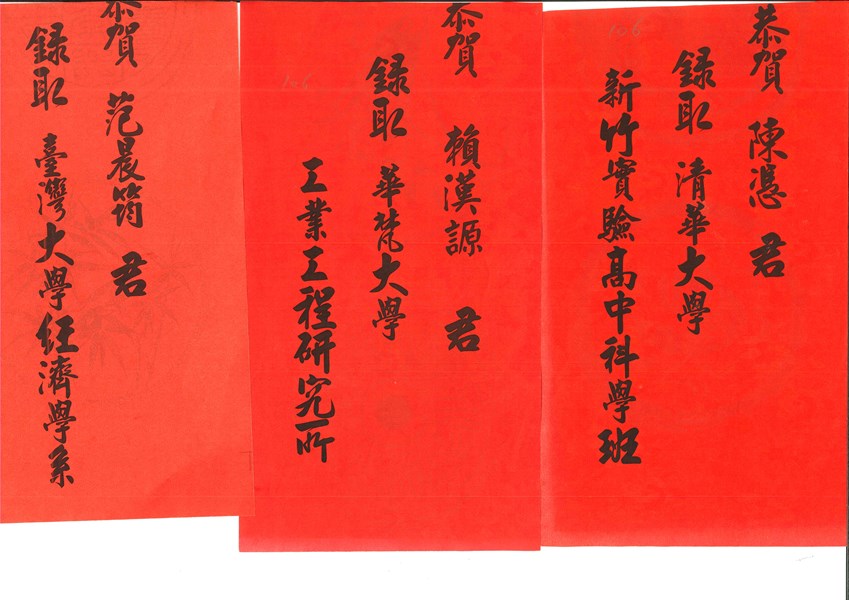 恭賀 陳憑 君
錄取 清華大學
新竹實驗高中科學班
106
恭賀 賴漢源 君
錄取 華梵大學
工業工程研究所
106
恭賀 范晨筠 君
錄取 臺灣大學經濟學系